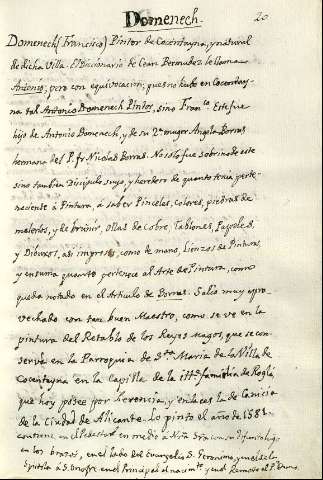 Domenech.
20
Domenech (Francisco) Pintor de Cocentayna, y natural
de dicha Villa. El Diccionario de Cean Bermudez le llama
Antonio; pero con equivocacion; que no hubo en Cocentay-
na tal Antonio Domenech Pintor, sino Franco. Este fue
hijo de Antonio Domenech, y de su 2ª muger Angela Borras
hermana del P. fr Nicolas Borras. No solo fue sobrino de este
sino tambien Discipulo suyo, y heredero de quanto tenia perte-
neciente á Pintura, á saber Pinceles, colores, piedras de
molerlos, y de bruñir, ollas de Cobre, Tablones, Papeles,
y Dibuxos, asi impresos, como de mano, Lienzos de Pintura,
y en suma quanto pertenece al Arte de Pintura, como
queda notado en el Articulo de Borras. Salio muy apro-
vechado con tan buen Maestro, como se ve en la
pintura del Retablo de los Reyes Magos, que se con-
serva en la Parroquia de Sta. Maria de la Villa de
Cocentayna en la Capilla de la familia de Roglá,
que hoy posee por herencia, y enlaces la de
de la Ciudad de Alicante. Lo pinto el año de 1581.
contiene en el Pedestal en medio á Ntra Sra con su difunto hijo
en los brazos, en el lado del Evangelio S. Geronimo, y en el de la
Epistola á S. Onofre en el Principal el nacimto. y en el Remate el P. Eterno.